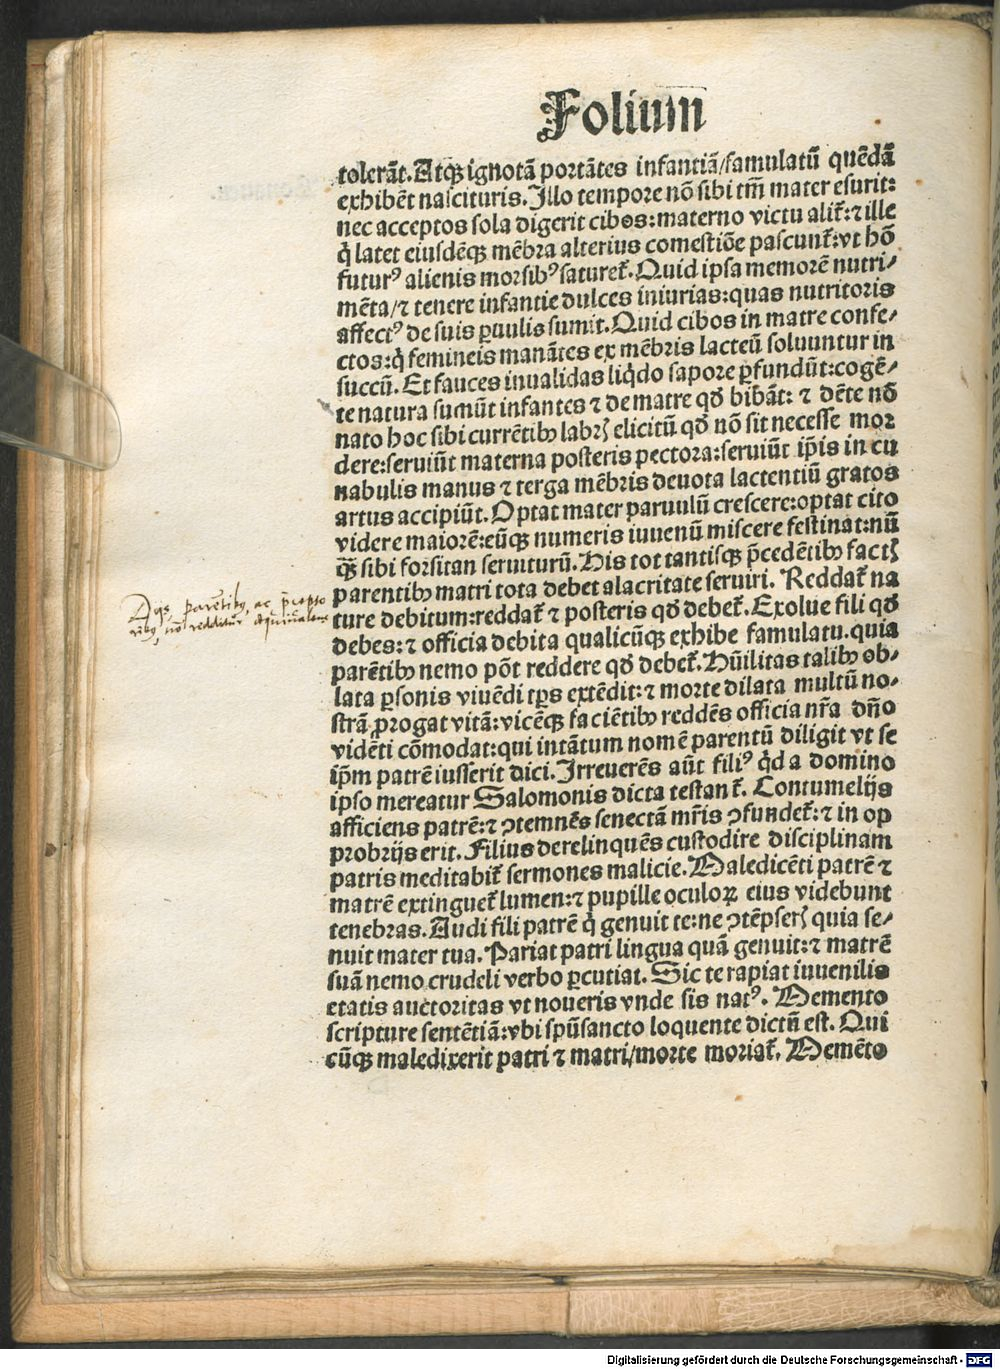 Folium
tolerāt. Atqꝫ ignotā portātes infantiā/famulatū quēdā
exhibēt nascituris. Illo tempore nō sibi tm̄ mater esurit:
nec acceptos sola digerit cibos: materno victu alit᷑: ⁊ ille
q̇ latet eiusdēqꝫ mēbra alterius comestiōe pascunt᷑: vt hō
futurꝰ alienis morsibꝰ saturet᷑. Quid ipsa memorē nutri⸗
mēta/⁊ tenere infantie dulces iniurias: quas nutritoris
affectꝰ de suis ꝑuulis sumit. Quid cibos in matre confe⸗
ctos: q̇ femineis manātes ex mēbris lacteū soluuntur in
succū. Et fauces inualidas liq̇do sapore ꝑfundūt: cogē⸗
te natura sumūt infantes ⁊ de matre qd̄ bibāt: ⁊ dēte nō
nato hoc sibi currētibꝫ labrꝭ elicitū qd̄ nō sit necesse mor
dere: seruiūt materna posteris pectora: seruiūt ip̄is in cu
nabulis manus ⁊ terga mēbris deuota lactentiū gratos
artus accipiūt. Optat mater paruulū crescere: optat cito
videre maiorē: eūqꝫ numeris iuuenū miscere festinat: nū
qꝫ̄ sibi forsitan seruiturū. His tot tantisqꝫ p̄cedētibꝫ factꝭ
parentibꝫ matri tota debet alacritate seruiri. Reddat᷑ na
ture debitum: reddat᷑ ⁊ posteris qd̄ debet᷑. Exolue fili qd̄
debes: ⁊ officia debita qualicūqꝫ exhibe famulatu. quia
parētibꝫ nemo pōt reddere qd̄ debet᷑. Hūilitas talibꝫ ob⸗
lata ꝑsonis viuēdi tp̄s extēdit: ⁊ morte dilata multū no⸗
strā ꝓrogat vitā: vicēqꝫ faciētibꝫ reddēs officia nr̄a dn̄o
vidēti cōmodat: qui intātum nomē parentū diligit vt se
ip̄m patrē iusserit dici. Irreuerēs aūt filiꝰ q̇d a domino
ipso mereatur Salomonis dicta testant᷑. Contumelijs
afficiens patrē: ⁊ ꝯtemnēs senectā mr̄is ꝯfundet᷑: ⁊ in op
probrijs erit. Filius derelinquēs custodire disciplinam
patris meditabit᷑ sermones malicie. Maledicēti patrē ⁊
matrē extinguet᷑ lumen: ⁊ pupille oculoꝝ eius videbunt
tenebras. Audi fili patrē q̇ genuit te: ne ꝯtēpserꝭ quia se⸗
nuit mater tua. Pariat patri lingua quā genuit: ⁊ matrē
suā nemo crudeli verbo ꝑcutiat. Sic te rapiat iuuenilis
etatis auctoritas vt noueris vnde sis natꝰ. Memento
scripture sentētiā: vbi spū sancto loquente dictū est. Qui
cūqꝫ maledixerit patri ⁊ matri/morte moriat᷑. Memēto
Dijs, parētibꝫ, ac p̄cepto
ribꝫ, nō redditur equiualens
Digitalisierung gefördert durch die Deutsche Forschungsgemeinschaft - DFG